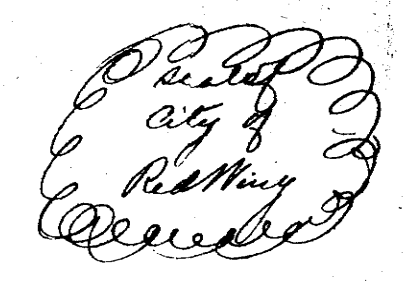 Seal of
City of
Red Wing